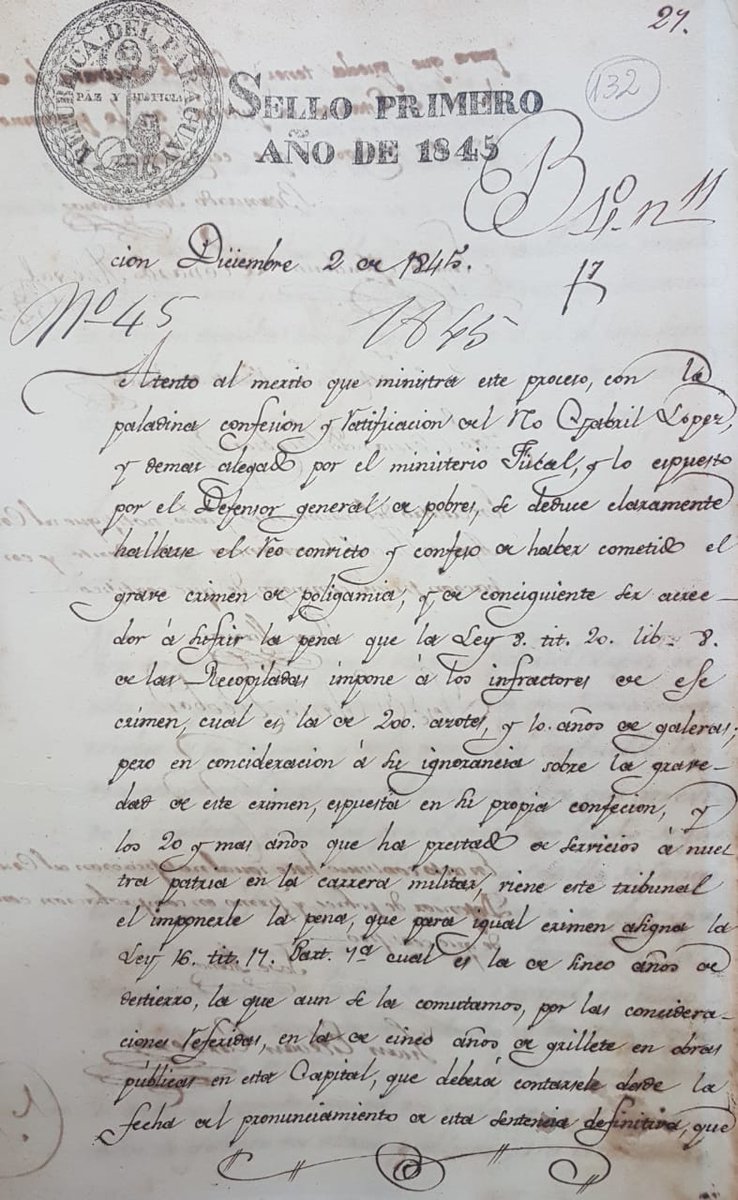 27.
132
REPUBLICA DEL PARAGUAY
PAZ Y JUSTICIA
SELLO PRIMERO
AÑO DE 1845
cion Diciembre 2 de 1845.
Nº 45
1845
Atento al merito que ministra este proceso, con la
paladina confesion y ratificacion del Reo Gabril Lopez,
y demas alegado por el ministerio Fiscal, y lo espuesto
por el Defensor general de pobres, se deduce claramente
hallarse el Reo convicto y confeso de haber cometido el
grave crimen de poligamia, y de conciguiente ser acree-
dor á sufrir la pena que la Ley 8. tit. 20. lib. 8.
de las Recopiladas impone á los infractores de ese
crimen, cual es la de 200. azotes, y 10. años de galeras;
pero en concideracion á su ignorancia sobre la grave-
dad de este crimen, espuesta en su propia confecion, y
los 20 y mas años que ha prestado de servicios á nues
tra patria en la carrera militar, viene este tribunal
el imponerle la pena, que para igual crimen asigna la
Ley 16. tit. 17. Part. 7ª cual es la de sinco años de
destierro, la que aun se la comutamos, por las concidera-
ciones referidas, en la de cinco años de grillete en obras
públicas en esta Capital, que deberá contarsele desde la
fecha del pronunciamiento de esta sentencia definitiva, que